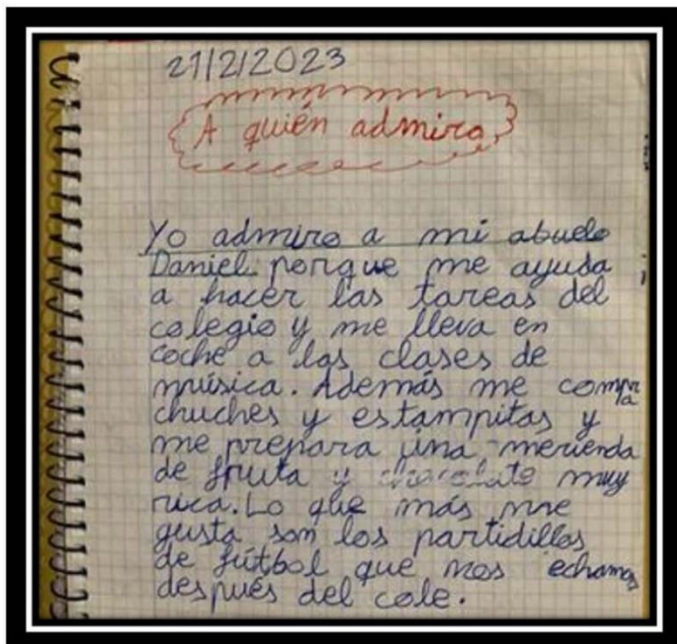 21/2/2023
A quién admiro
Yo admiro a mi abuelo
Daniel porque me ayuda
a hacer las tareas del
colegio y me lleva en
coche a las clases de
música. Además me compra
chuches y estampitas y
me prepara una merienda
de fruta y chocolate muy
rica. Lo que más me
gusta son los partidillos
de fútbol que nos echamos
después del cole.